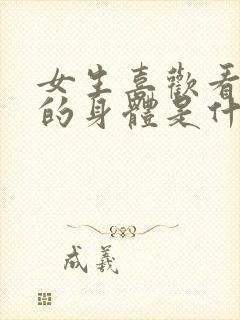 女生喜歡看
的身體是什
成義